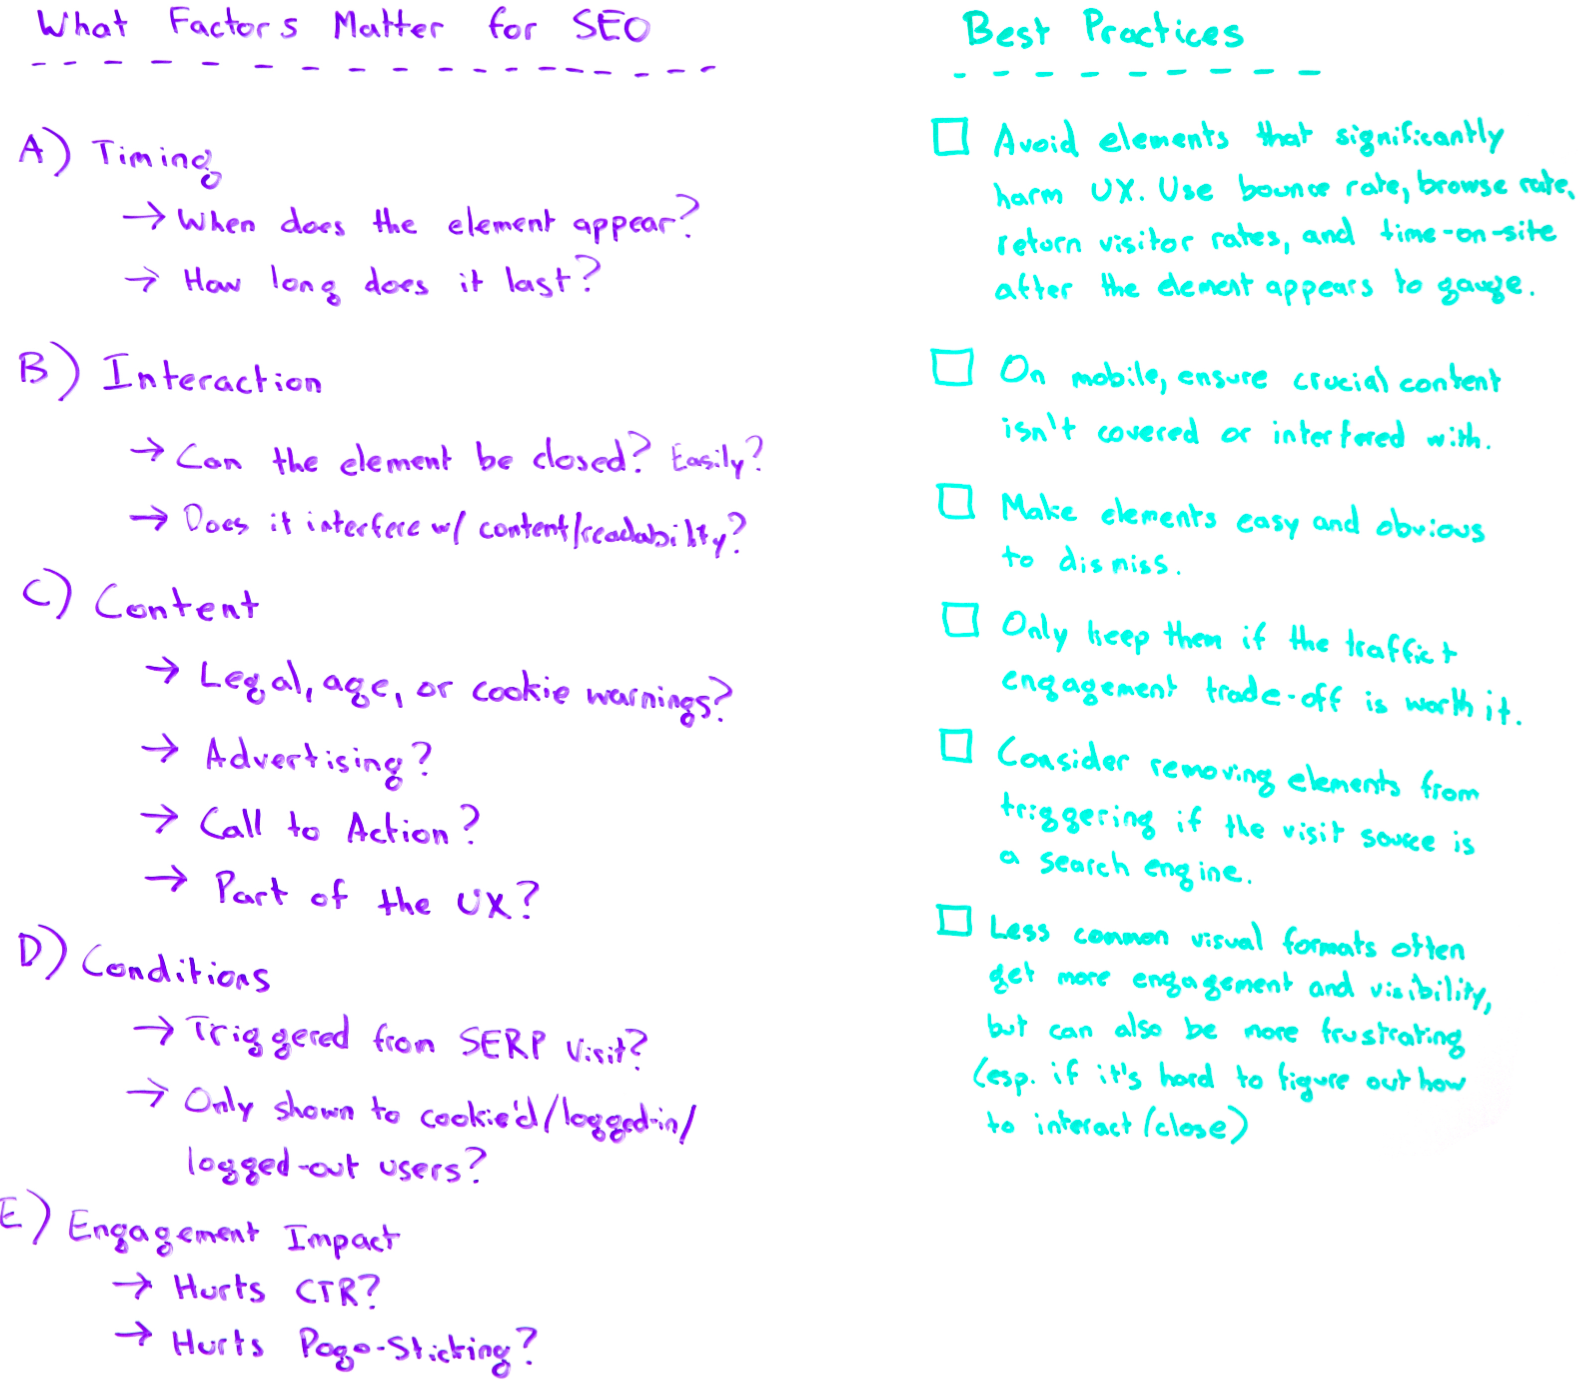 What Factors Matter for SEO
A) Timing
→ When does the element appear?
→ How long does it last?
B) Interaction
→ Can the element be closed? Easily?
→ Does it interfere w/ content/readability?
C) Content
→ Legal, age, or cookie warnings?
→ Advertising?
→ Call to Action?
→ Part of the UX?
D) Conditions
→ Triggered from SERP Visit?
→ Only shown to cookie'd/logged-in/
logged-out users?
E) Engagement Impact
→ Hurts CTR?
→ Hurts Pogo-Sticking?
Best Practices
Avoid elements that significantly
harm UX. Use bounce rate, browse rate,
return visitor rates, and time-on-site
after the element appears to gauge.
On mobile, ensure crucial content
isn't covered or interfered with.
Make elements easy and obvious
to dismiss.
Only keep them if the traffic +
engagement trade-off is worth it.
Consider removing elements from
triggering if the visit source is
a search engine.
Less common visual formats often
get more engagement and visibility,
but can also be more frustrating
(esp. if it's hard to figure out how
to interact/close)